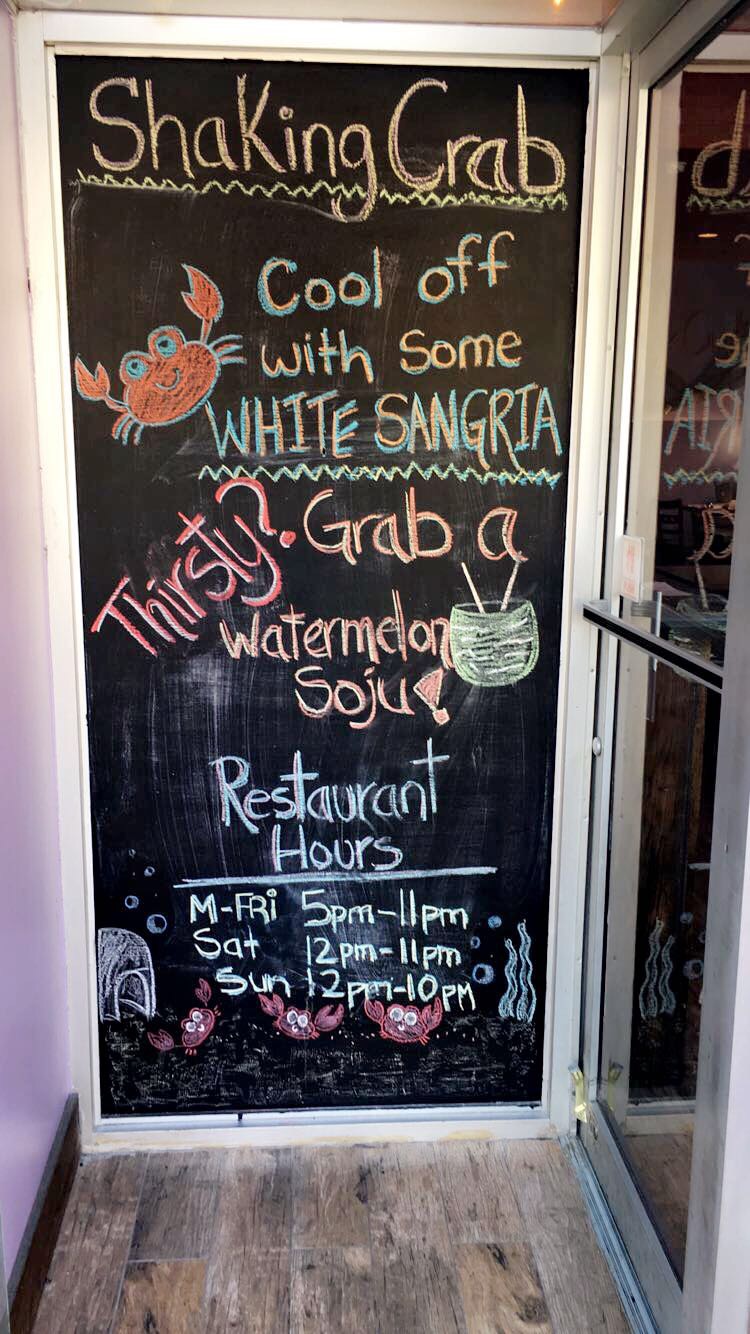 Shaking Crab
Cool off
with Some
WHITE SANGRIA
Thirsty? Grab a
watermelon
Soju!
Restaurant
Hours
M-FRi 5pm-11pm
Sat 12pm-11pm
Sun 12pm-10pm